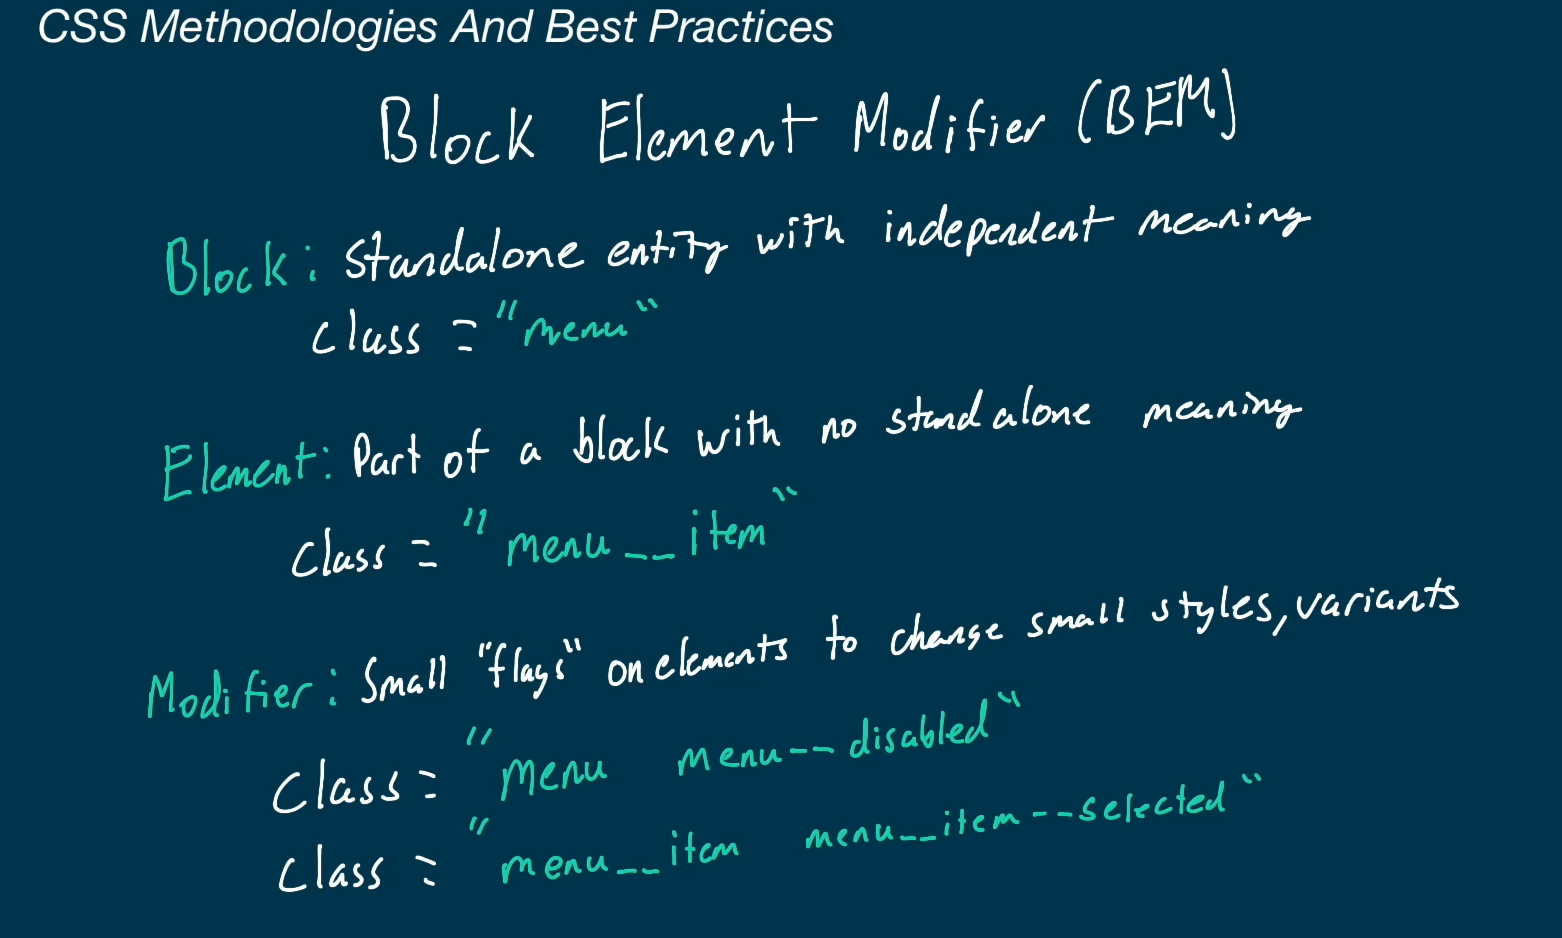 CSS Methodologies And Best Practices
Block Element Modifier (BEM)
Block: Standalone entity with independent meaning
class = "menu"
Element: Part of a block with no standalone meaning
class = "menu__item"
Modifier: Small "flags" on elements to change small styles, variants
Class = "menu menu--disabled"
Class = "menu__item menu__item--selected"